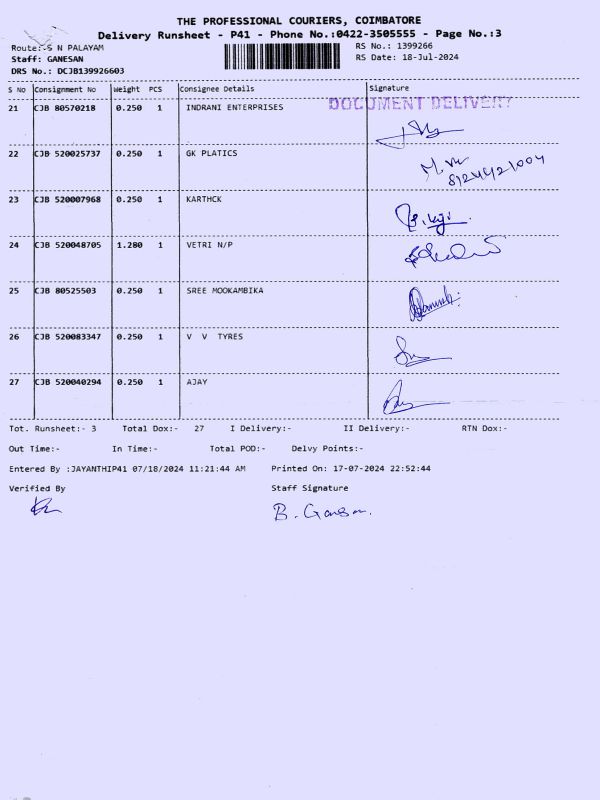 THE PROFESSIONAL COURIERS, COIMBATORE
Delivery Runsheet - P41 - Phone No.:0422-3505555 - Page No.:3
Route:-S N PALAYAM
RS No.: 1399266
Staff: GANESAN
RS Date: 18-Jul-2024
DRS No.: DCJB139926603
S No Consignment No Weight PCS Consignee Details Signature
DOCUMENT DELIVERY
21 CJB 80570218 0.250 1 INDRANI ENTERPRISES
22 CJB 520025737 0.250 1 GK PLATICS
8124421004
23 CJB 520007968 0.250 1 KARTHCK
24 CJB 520048705 1.280 1 VETRI N/P
25 CJB 80525503 0.250 1 SREE MOOKAMBIKA
26 CJB 520083347 0.250 1 V V TYRES
27 CJB 520040294 0.250 1 AJAY
Tot. Runsheet:- 3 Total Dox:- 27 I Delivery:- II Delivery:- RTN Dox:-
Out Time:- In Time:- Total POD:- Delvy Points:-
Entered By :JAYANTHIP41 07/18/2024 11:21:44 AM Printed On: 17-07-2024 22:52:44
Verified By Staff Signature